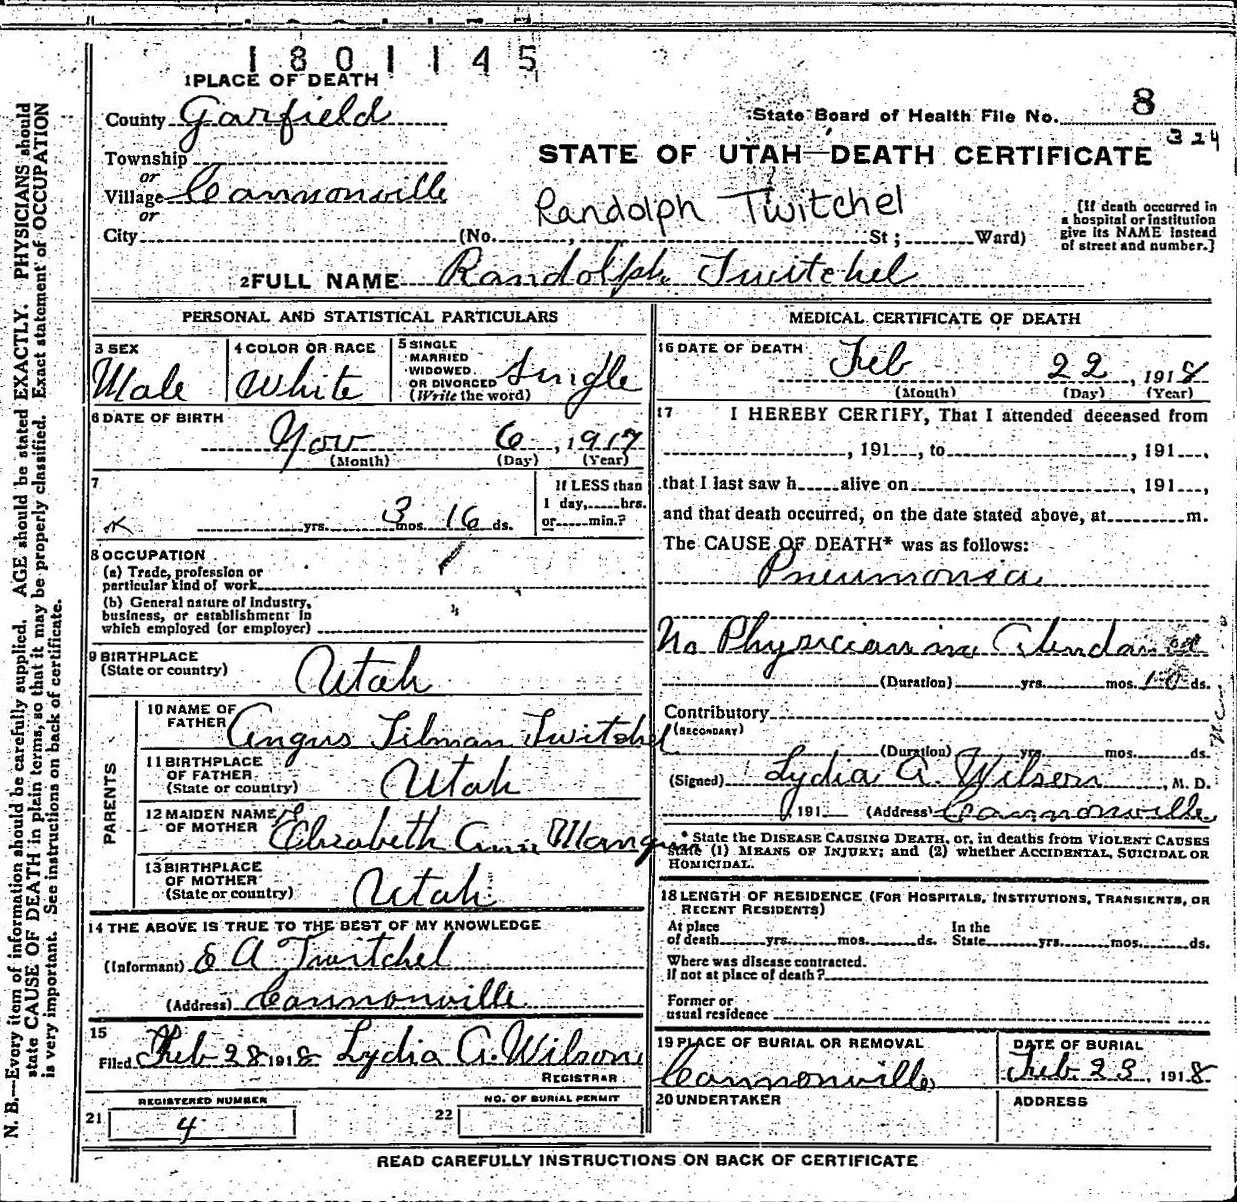 1801145
1 PLACE OF DEATH
County Garfield
State Board of Health File No. 8
324
Township
or
Village Cannonville
or
City
STATE OF UTAH—DEATH CERTIFICATE
Randolph Twitchel
(No. , St; Ward)
[If death occurred in
a hospital or institution
give its NAME instead
of street and number.]
2 FULL NAME Randolph Twitchel
PERSONAL AND STATISTICAL PARTICULARS
3 SEX
Male
4 COLOR OR RACE
White
5 SINGLE
MARRIED
WIDOWED
OR DIVORCED
(Write the word)
Single
6 DATE OF BIRTH
Nov 6, 1917
(Month) (Day) (Year)
7
yrs. 3 mos. 16 ds.
If LESS than
1 day, hrs.
or min.?
8 OCCUPATION
(a) Trade, profession or
particular kind of work
(b) General nature of industry,
business, or establishment in
which employed (or employer)
9 BIRTHPLACE
(State or country)
Utah
PARENTS
10 NAME OF
FATHER
Angus Tilman Twitchel
11 BIRTHPLACE
OF FATHER
(State or country)
Utah
12 MAIDEN NAME
OF MOTHER
Elizabeth Ann Mangum
13 BIRTHPLACE
OF MOTHER
(State or country)
Utah
14 THE ABOVE IS TRUE TO THE BEST OF MY KNOWLEDGE
(Informant) E A Twitchel
(Address) Cannonville
15
Filed Feb 28 1918 Lydia A. Wilson
REGISTRAR
21 REGISTERED NUMBER
4
22 NO. OF BURIAL PERMIT
MEDICAL CERTIFICATE OF DEATH
16 DATE OF DEATH
Feb 22, 1918
(Month) (Day) (Year)
17 I HEREBY CERTIFY, That I attended deceased from
, 191 , to , 191 ,
that I last saw h alive on , 191 ,
and that death occurred, on the date stated above, at m.
The CAUSE OF DEATH* was as follows:
Pneumonia
No Physician in Atendance
(Duration) yrs. mos. 10 ds.
Contributory
(SECONDARY)
(Duration) yrs. mos. ds.
(Signed) Lydia A. Wilson, M. D.
, 191 (Address) Cannonville
* State the DISEASE CAUSING DEATH, or, in deaths from VIOLENT CAUSES
state (1) MEANS OF INJURY; and (2) whether ACCIDENTAL, SUICIDAL OR
HOMICIDAL.
18 LENGTH OF RESIDENCE (FOR HOSPITALS, INSTITUTIONS, TRANSIENTS, OR
RECENT RESIDENTS)
At place
of death yrs. mos. ds.
In the
State yrs. mos. ds.
Where was disease contracted.
if not at place of death?
Former or
usual residence
19 PLACE OF BURIAL OR REMOVAL
Cannonville
DATE OF BURIAL
Feb 23, 1918
20 UNDERTAKER
ADDRESS
READ CAREFULLY INSTRUCTIONS ON BACK OF CERTIFICATE
N. B.—Every item of information should be carefully supplied. AGE should be stated EXACTLY. PHYSICIANS should
state CAUSE OF DEATH in plain terms, so that it may be properly classified. Exact statement of OCCUPATION
is very important. See instructions on back of certificate.